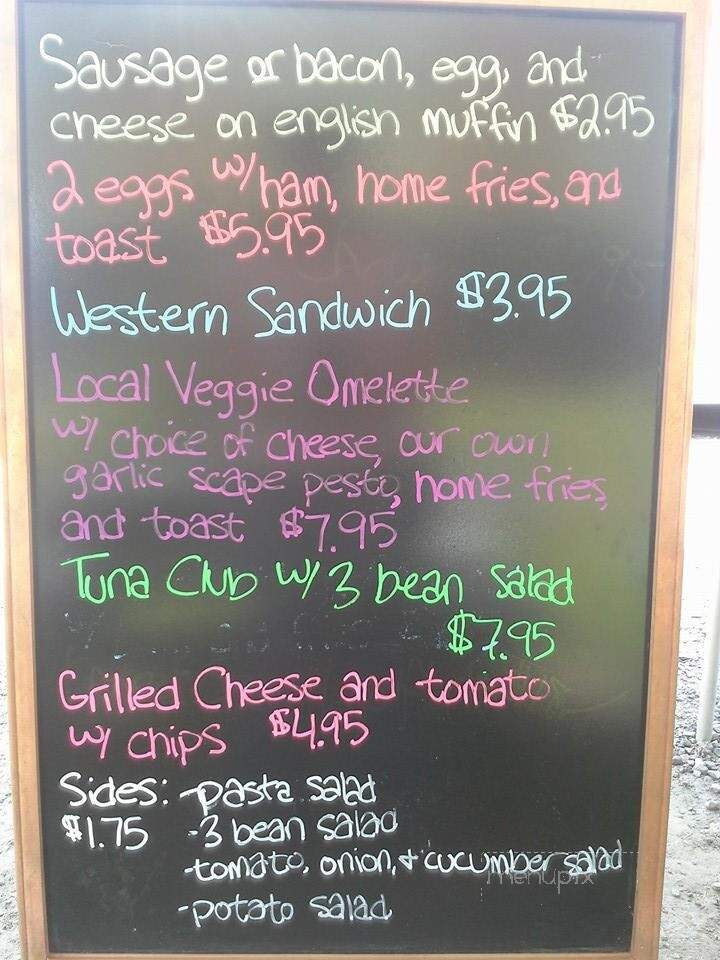 Sausage or bacon, egg, and
cheese on english muffin $2.95
2 eggs w/ ham, home fries, and
toast $5.95
Western Sandwich $3.95
Local Veggie Omelette
w/ choice of cheese, our own
garlic scape pesto, home fries,
and toast $7.95
Tuna Club w/ 3 bean salad
$7.95
Grilled Cheese and tomato
w/ chips $4.95
Sides: -pasta salad
$1.75 -3 bean salad
-tomato, onion, + cucumber salad
menupix
-potato salad